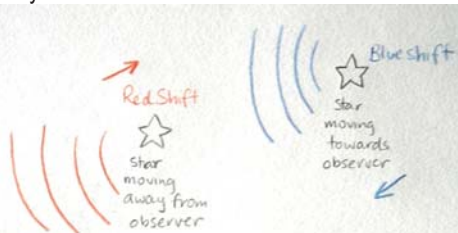 Red Shift
Star
moving
away from
observer
Blue shift
Star
moving
towards
observer